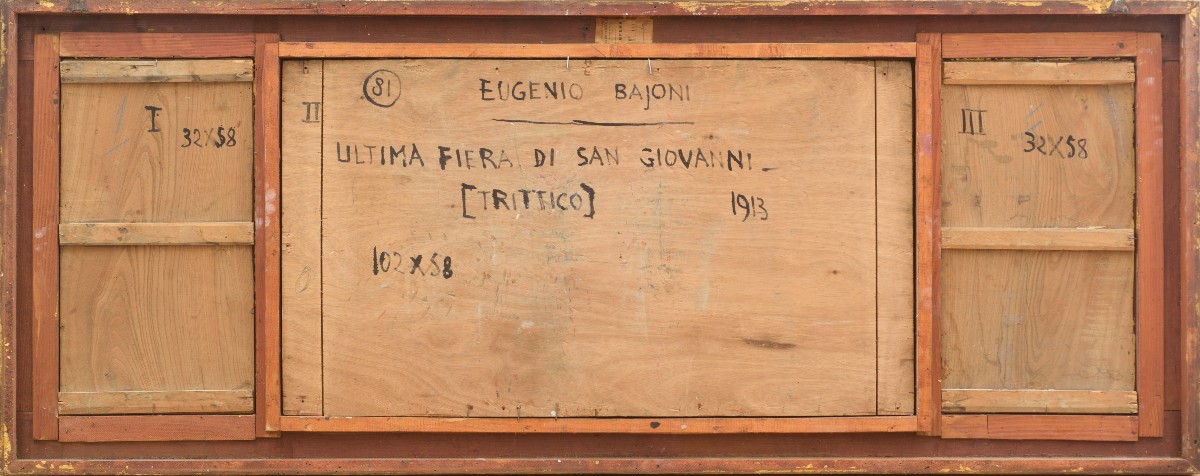 I
32X58
II
81
EUGENIO BAJONI
ULTIMA FIERA DI SAN GIOVANNI
[TRITTICO] 1913
102X58
III
32X58